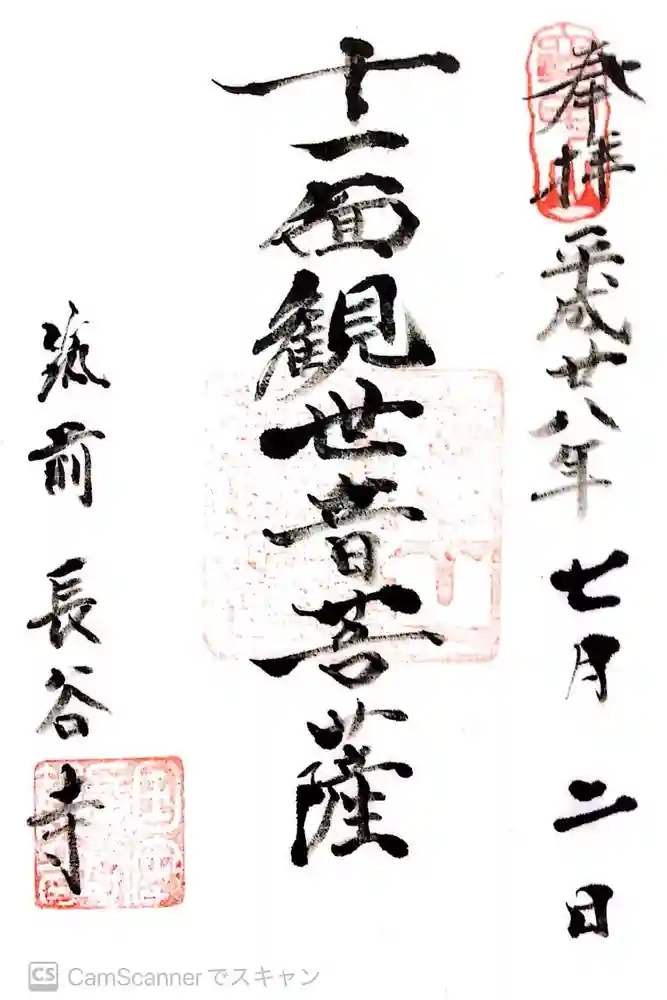 奉拝
平成廿八年七月二日
十一面観世音菩薩
筑前 長谷寺
CS CamScannerでスキャン